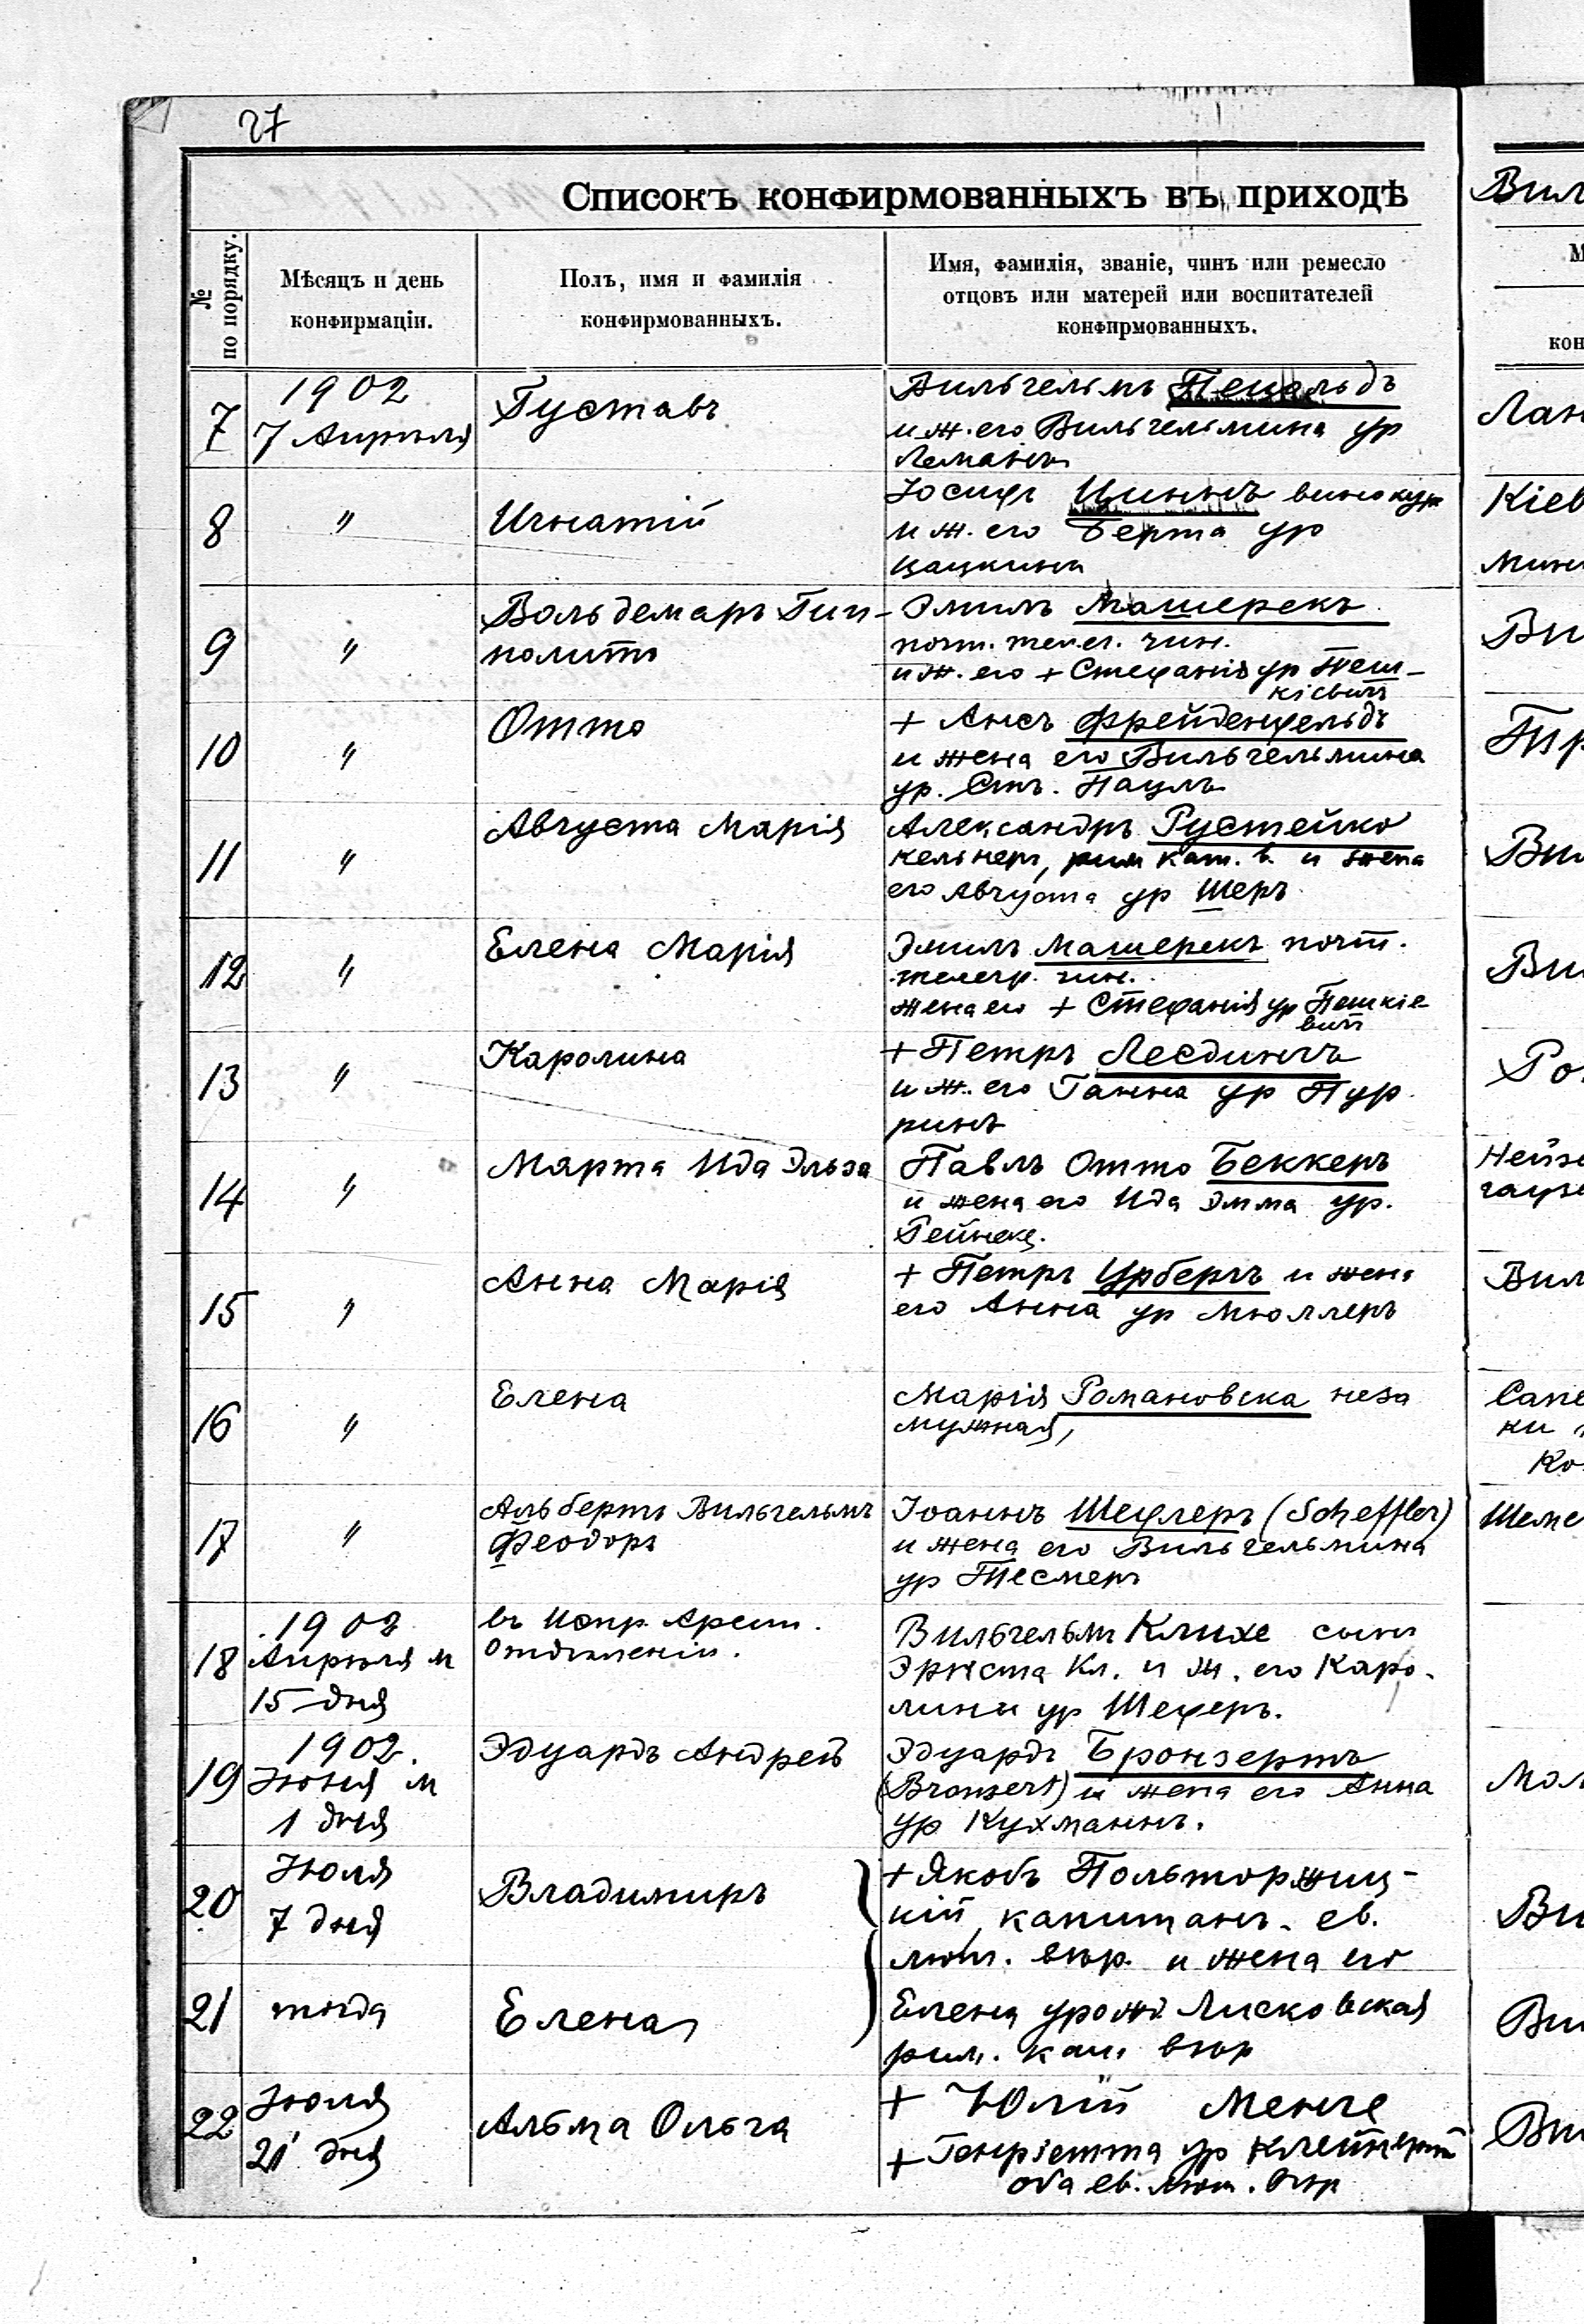 27
Списокъ конфирмованныхъ въ приходѣ
Вил
№ по порядку.
Мѣсяцъ и день
конфирмаціи.
Полъ, имя и фамилія
конфирмованныхъ.
Имя, фамилія, званіе, чинъ или ремесло
отцовъ или матерей или воспитателей
конфирмованныхъ.
М
кон
7
1902
7 Апрѣля
Густавъ
Вильгельмъ
и ж. его Вильгельмина ур
Леманъ
Лан
8
"
Игнатій
Іосифъ Циннъ винокур
и ж. его Берта ур
Кіев
мин
9
"
Вольдемаръ Гип-
политъ
Эмиль Машерекъ
почт. телег. чин.
и ж. его + Стефанія ур Пеш-
кіевич
Ви
10
"
Отто
+ Ансъ Фрейденфельдъ
и жена его Вильгельмина
ур. Стъ. Паулъ
Пр
11
"
Августа Марія
Александръ Рустейко
кельнеръ, рим кат. в. и жена
его Августа ур Шеръ
Вил
12
"
Елена Марія
Эмиль Машерекъ почт.
телегр. чин.
жена его + Стефанія ур Пешкіе-
вич
Ви
13
"
Каролина
+ Петръ Лесдингъ
и ж. его Ганна ур Пур
ринъ
Ро
14
"
Марта Ида Эльза
Павлъ Отто Беккеръ
и жена его Ида Эмма ур.
Рейнеке.
Нейз
гауз
15
"
Анна Марія
+ Петръ Урбергъ и жена
его Анна ур Мюллеръ
Вил
16
"
Елена
Марія Романовска неза
мужная,
Сапе
ки
Ко
17
"
Альбертъ Вильгельмъ
Феодоръ
Іоаннъ Шефлеръ (Scheffler)
и жена его Вильгельмина
ур Тесмеръ
Шеме
18
1902
Апрѣля м
15 дня
въ Испр. Арест.
отдѣленіи.
Вильгельм Клихе сынъ
Эрнста Кл. и ж. его Каро-
лины ур Шеферъ.
19
1902.
Іюня м
1 дня
Эдуардъ Андрей
Эдуардъ Бронзертъ
(Bronsert) и жена его Анна
ур Кухманнъ.
Мол
20
Іюля
7 дня
Владимиръ
+ Якобъ Польторжиц-
кій, капитанъ. ев.
лют. вѣр. и жена его
Ви
21
тогда
Елена
Елена урожд Лисковская
рим. кат. вѣр
Ви
22
Іюля
21 дня
Альма Ольга
+ Юлій Менге
+ Генріетта ур
оба ев. лют. вѣр
Ви